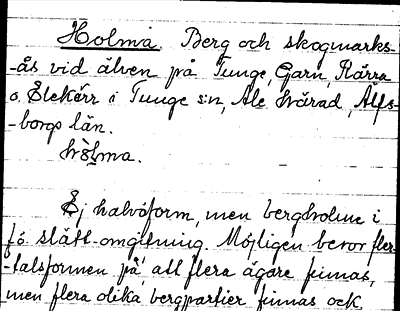 Holma. Berg och skogmarks-
-ås vid älven på Tunge, Garn, Rärra
o. Slekärr i Tunge s:n, Ale härad, Älfs-
-borgs län.
hòlma.
Ej halvöform, men bergholme i
fö. slätt-omgivning. Möjligen beror fler-
-talsformen på, att flera ägare finnas,
men flera olika bergpartier finnas ock